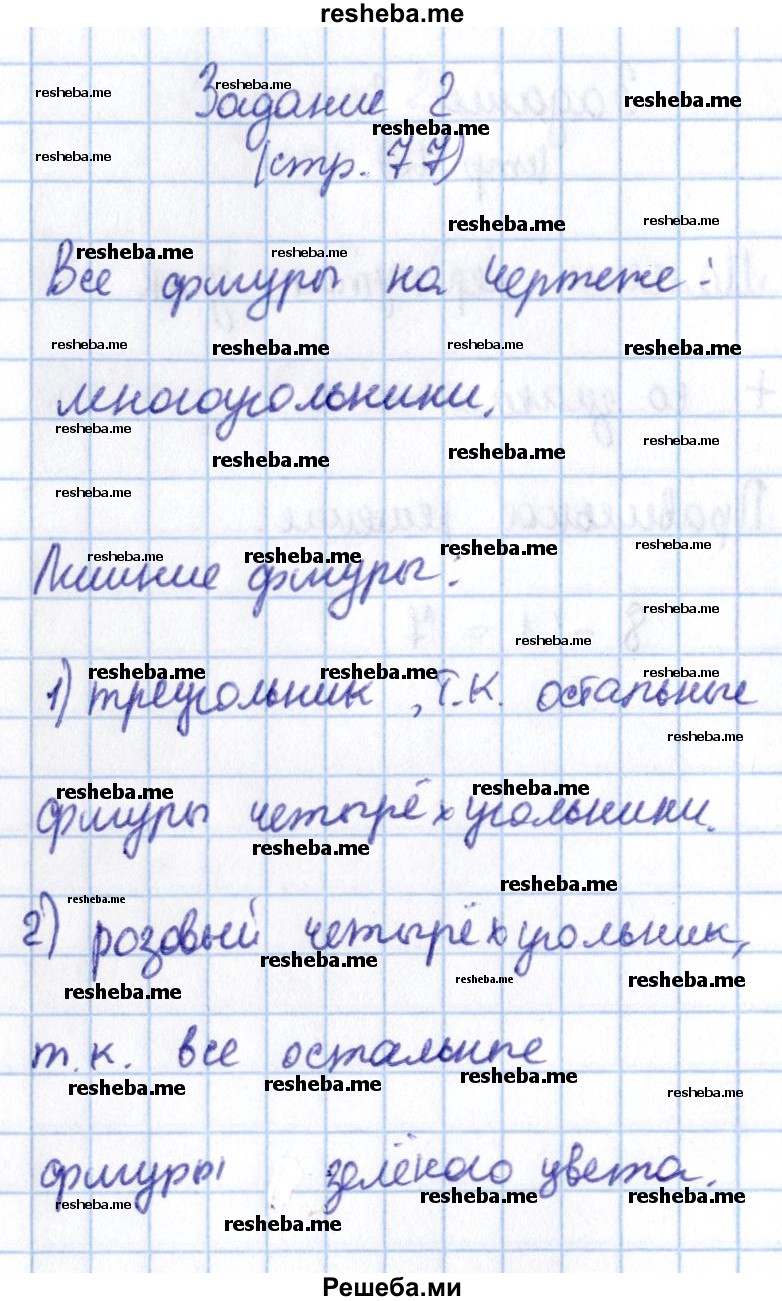 resheba.me
Задание 2
(стр. 77)
Все фигуры на чертеже:
многоугольники.
Лишние фигуры:
1) треугольник, т.к. остальные
фигуры четырёхугольники.
2) розовый четырёхугольник,
т.к. все остальные
фигуры зелёного цвета.
Решеба.ми